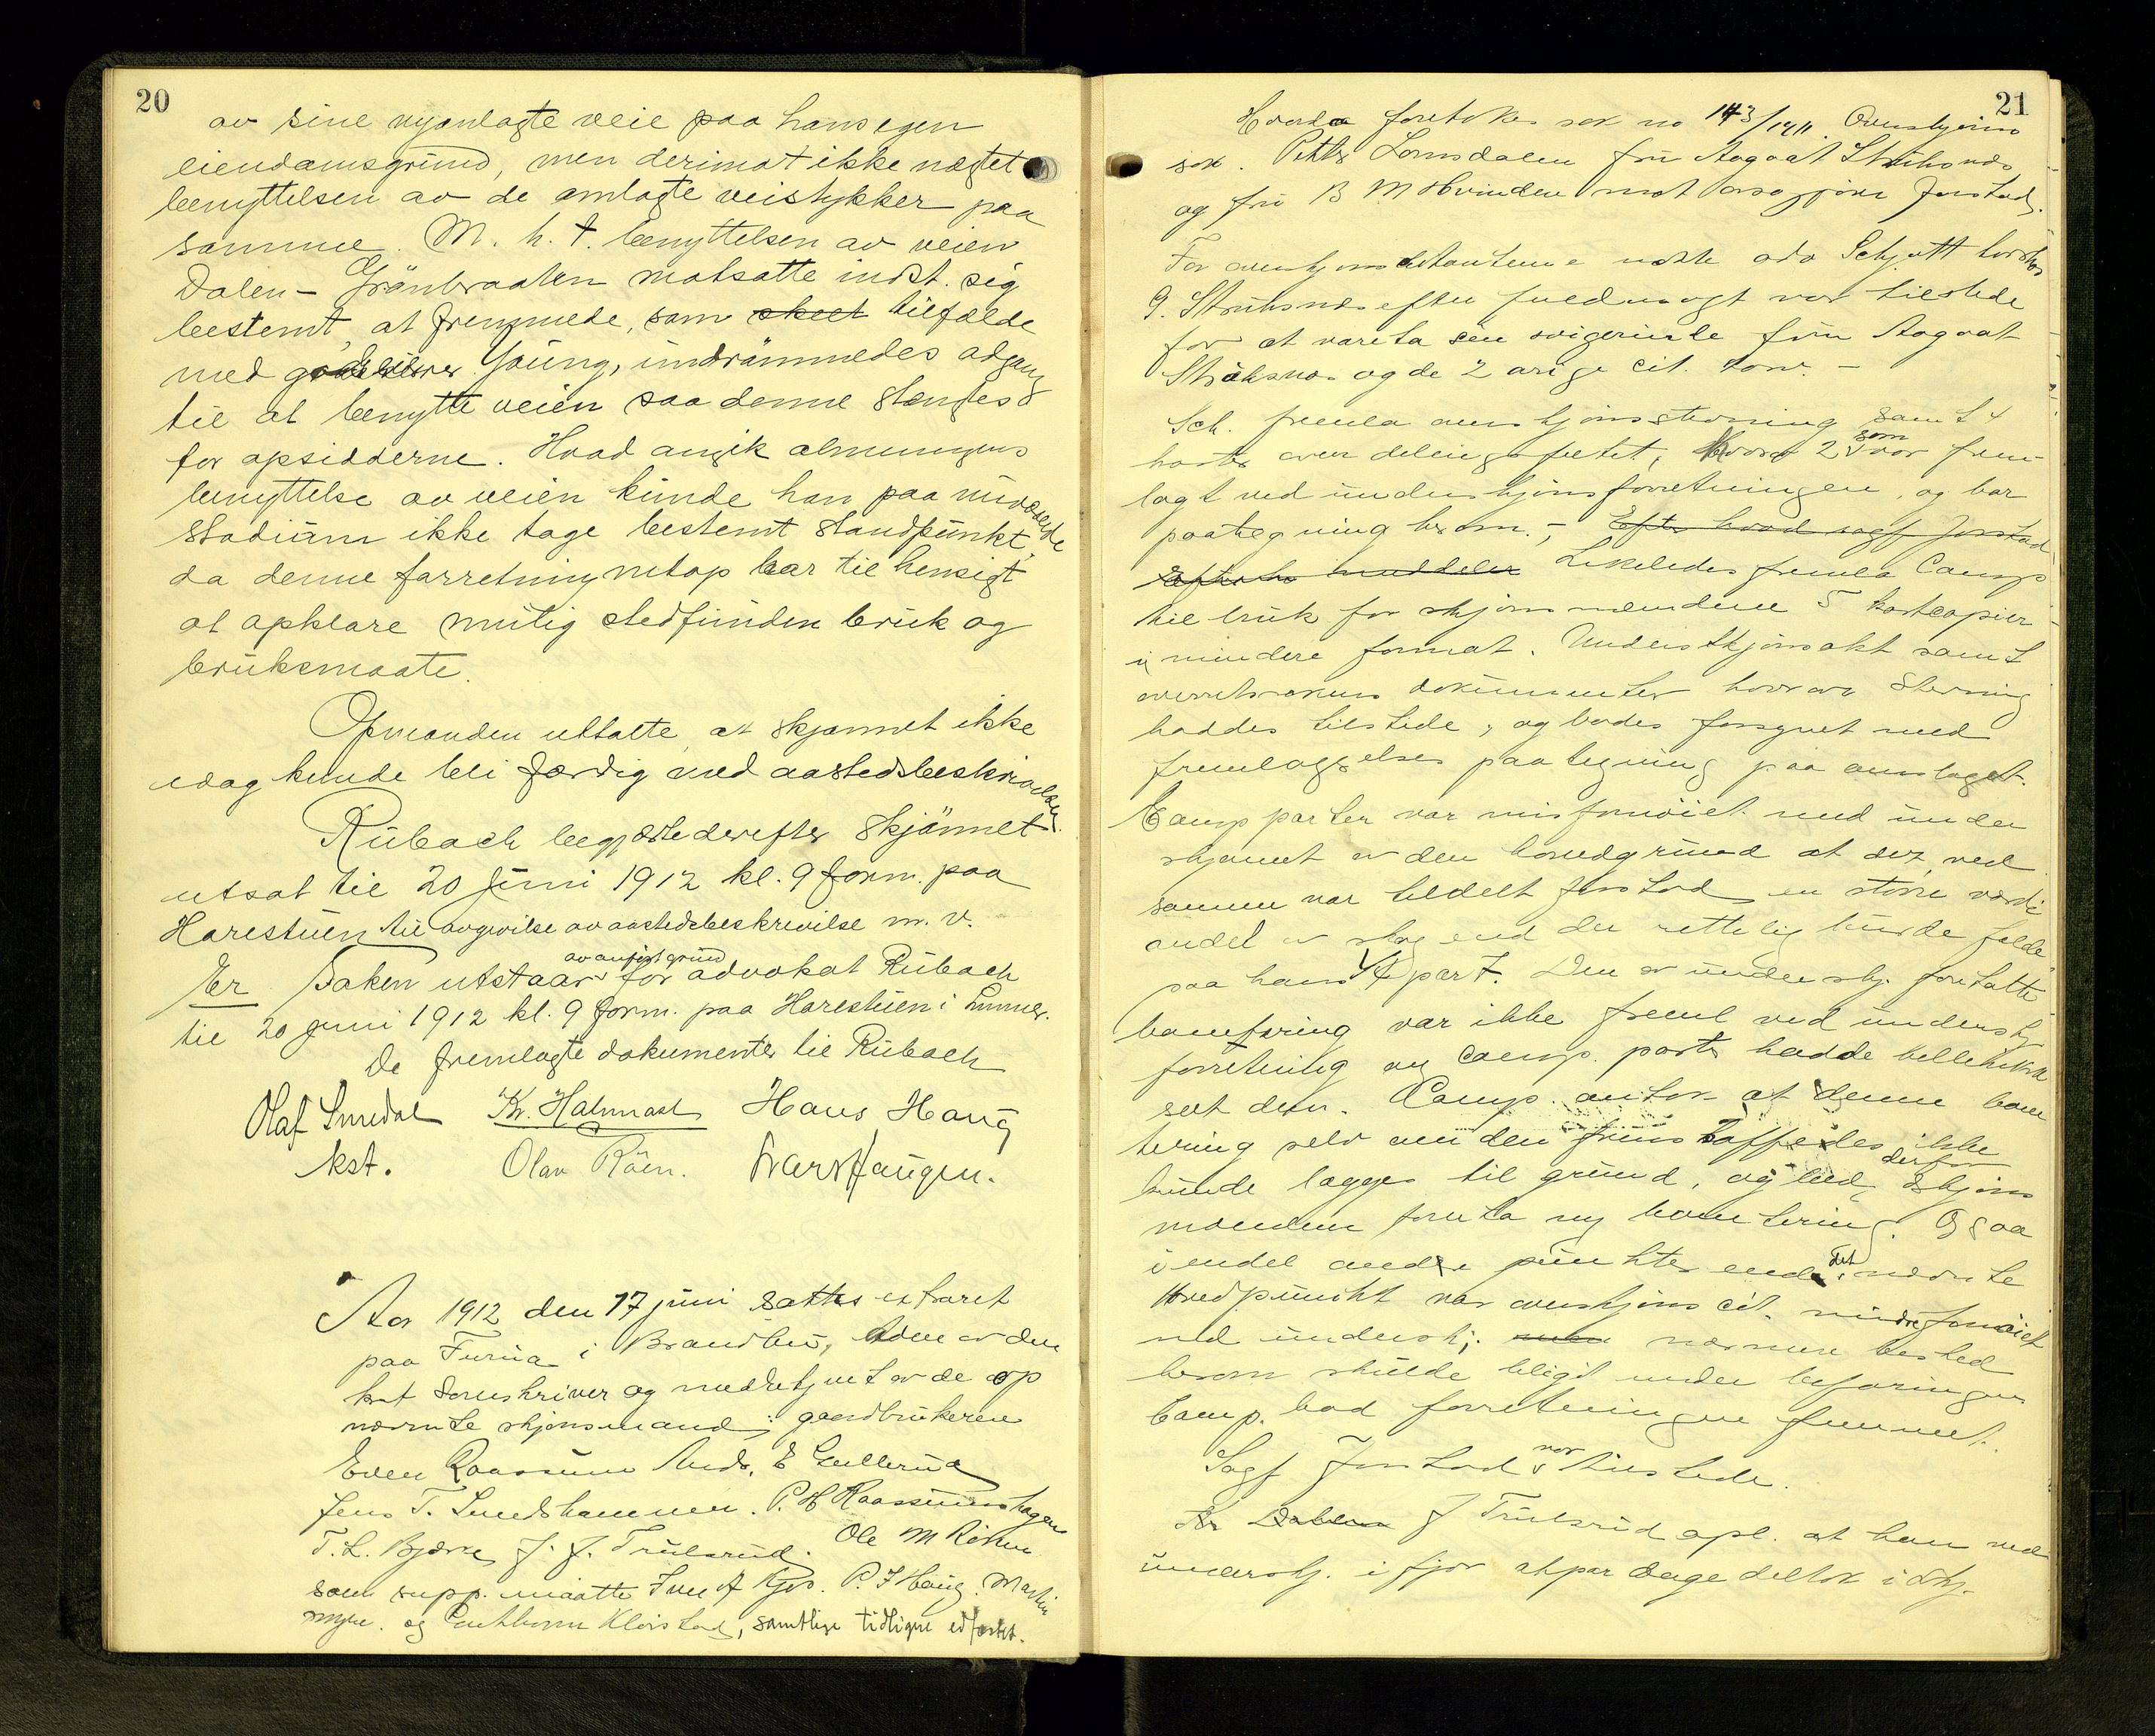 20
av sine nyanlagte veie paa hans egen
eiendomsgrund, men derimot ikke nægtet
benyttelsen av de omlagte veistykker paa
samme. M. h. t. benyttelsen av veien
Dalen - Grönbraaten motsatte indst. sig
bestemt, at fremmede, som skeet tilfælde
med godseier Young, indrömmedes adgang
til at benytte veien saa denne stenges
for opsidderne. Hvad angik almuugens
benyttelse av veien kunde han paa nuværende
stadium ikke tage bestemt standpunkt,
da denne forretning netop har til hensigt
at opklare mulig stedfunden bruk og
bruksmaate.
Opmanden uttalte, at skjønnet ikke
idag kunde bli færdig med aastedsbeskrivelsen.
Rubach begjærte derefter skjönnet
utsat til 20 juni 1912 kl. 9 form. paa
Harestuen til avgivelse av aastedsbeskrivelse m. v.
av anført grund
Er Saken utstaar for advokat Rubach
til 20 juni 1912 kl. 9 form. paa Harestuen i Lunner.
De fremlagte dokumenter til Rubach
Olaf Smedal Kr. Halmrast Hans Haug
kst. Olav Röen. Iver Haugen.
Aar 1912 den 17 juni sattes ret
paa Furua i Brandbu, av den
kst sorenskriver og medbetjent av de op
nævnte skjønsmænd: gaardbrukerne
Even Raassum Ands. E Gullerud
Jens T. Sundshammer. P. H Raassumshagen
T. L. Bjørge J. J. Trulsrud. Ole M
som supp. møtte Iver A P. I Haug. Martin
og Klæstad, samtlige tidligere edfæstet.
21
Hvorda foretokes sak no 143/1911. Overskjøns
sak. Petter Lomsdalen fru Aagaat Struksnæs
og fru B M Hvinden mot Jonstad.
For overskjøns møtte adv Schjøtt hos
G. Struksnæs efter fuldmagt var tilstede
for at vareta sin svigerinde fru Aagaat
Struksnæs og de 2 cit. tarv. -
Sch. fremla overskjønsstevning samt 4
karter over delingsfeltet, hvorav 2 som var frem-
lagt ved underskjønsforretningen, og bar
paategning herom. - Efter hvad sagf Jonstad
meddeler Likeledes fremla Comp
til bruk for skjønsmændene 5 kartcopier
i mindre format. Underskjønsakt samt
dokumenter stevning
haddes tilstede, og bades forsynet med
fremlæggelses paategning paa omslaget.
Comp parter var misfornöiet med under
skjønnet av den hovedgrund at der ved
samme var tildelt Jonstad en större værdi
andel av skog end der rettelig burde falde
paa hans 1/4 part. Den av undersk. foretatte
bonitering var ikke freml ved undersk
forretning og comp. parter hadde ikke
set den. Comp. antok at denne boni
tering selv om den skaffedes ikke
kunde lægges til grund, og bad derfor skjøns
mændene foreta ny bonitering. Ogsaa
i endel andre punkter end det nævnte
hovedpunkt var overskjøns cit. misfornöiet
med undersk; nærmere besked
herom skulde bli git under befaringen
Comp. bad forretningen fremmet.
Sagf Jonstad var tilstede.
J Trulsrud opl. at han ved
undersk. i fjor et par dage deltok i